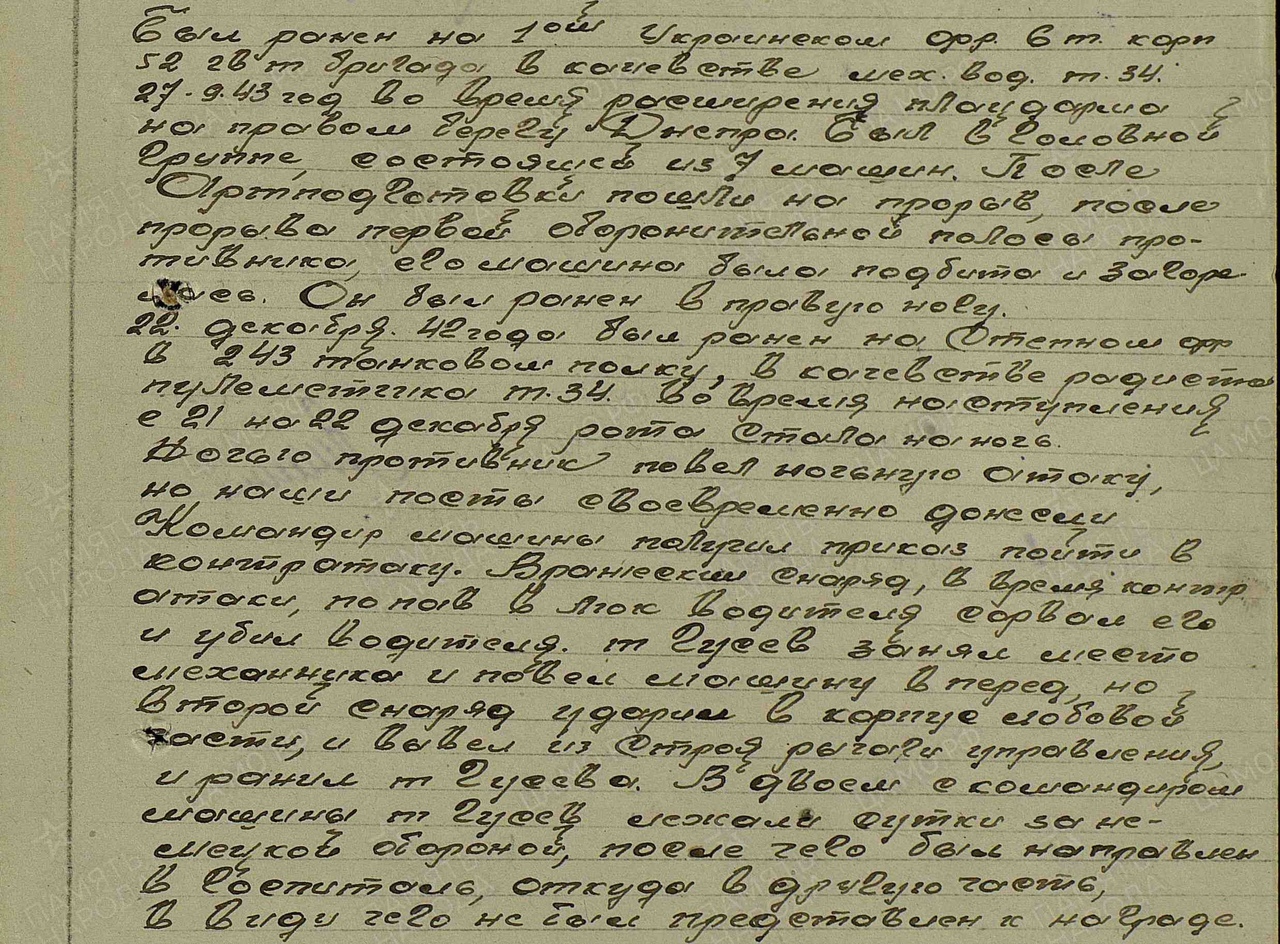 Был ранен на 1ом Украинском фр. 6 т. корп
52 гв т бригада в качевстве мех. вод. т. 34.
27.9.43 год во время расширения плацдарма
на правом берегу Днепра. Был в головной
группе, состоящей из 7 машин. После
Артподготовки пошли на прорыв, после
прорыва первой оборонительной полосы про-
тивника, его машина была подбита и загоре-
лась. Он был ранен в правую ногу.
22. декабря. 42 года был ранен на Степном фр
в 243 танковом полку, в качевстве радиста
пулеметчика т. 34. Во время наступления
с 21 на 22 декабря рота стала на ночь.
Ночью противник повел ночьную атаку,
но наши посты своевременно донесли
Командир машины получил приказ пойти в
контратаку. Вражеский снаряд, в время контр
атаки, попав в люк водителя сорвал его
и убил водителя. т Гусев занял место
механника и повел машину в перед, но
второй снаряд ударил в корпус лобовой
части, и вывел из строя рычаги управления,
и ранил т Гусева. В двоем с командиром
машины т Гусев лежали сутки за не-
мецкой обороной, после чего был направлен
в госпиталь, откуда в другую часть,
в види чего не был представлен к награде.